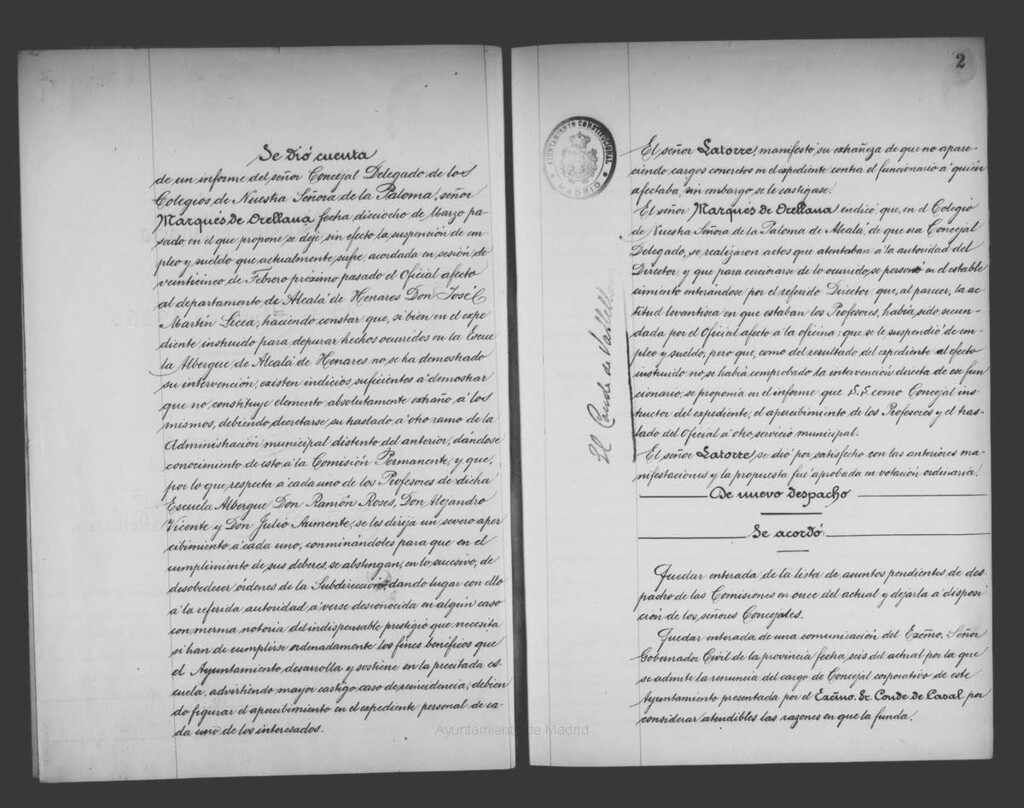 Se dió cuenta
de un informe del señor Concejal Delegado de los
Colegios de Nuestra Señora de la Paloma, señor
Marqués de Orellana, fecha dieciocho de Marzo pa-
sado en el que propone se deje sin efecto la suspensión de em-
pleo y sueldo que actualmente sufre, acordada en sesión de
veinticinco de Febrero próximo pasado el Oficial afecto
al departamento de Alcalá de Henares Don José
Martín Licea, haciendo constar que, si bien en el expe-
diente instruido para depurar hechos ocurridos en la Escue
la Albergue de Alcalá de Henares no se ha demostrado
su intervención, existen indicios suficientes a demostrar
que no constituye elemento absolutamente extraño a los
mismos, debiendo decretarse su traslado a otro ramo de la
Administración municipal distento del anterior, dándose
conocimiento de esto a la Comisión Permanente, y que,
por lo que respecta a cada uno de los Profesores de dicha
Escuela Albergue Don Ramón Roses, Don Alejandro
Vicente y Don Julio Aumente, se les dirija un severo aper
cibimiento a cada uno, conminándoles para que en el
cumplimiento de sus deberes, se abstengan, en lo sucesivo, de
desobedecer órdenes de la Subdirección, dando lugar con ello
a la referida autoridad a verse desconocida en algún caso
con merma notoria del indispensable prestigio que necesita
si han de cumplirse ordenadamente los fines benéficos que
el Ayuntamiento desarrolla y sostiene en la precitada es-
cuela, advirtiendo mayor castigo caso de reincidencia; debien
do figurar el apercibimiento en el expediente personal de ca-
da uno de los interesados.
2
AYUNTAMIENTO CONSTITUCIONAL
MADRID
El Conde de
El señor Latorre, manifestó su extrañeza de que no apare-
ciendo cargos concretos en el expediente contra el funcionario a quien
afectaba, sin embargo, se le castigase.
El señor Marqués de Orellana indicó que, en el Colegio
de Nuestra Señora de la Paloma de Alcalá, de que era Concejal
Delegado, se realizaron actos que atentaban a la autoridad del
Director, y que para cerciorarse de lo ocurrido, se personó en el estable
cimiento enterándose por el referido Director, que, al parecer, la ac-
titud levantisca en que estaban los Profesores, había sido secun-
dada por el Oficial afecto a la oficina; que se le suspendió de em-
pleo y sueldo; pero que, como del resultado del expediente al efecto
instruido no se había comprobado la intervención directa de ese fun-
cionario, se proponía en el informe que S.S. como Concejal ins-
tructor del expediente, el apercibimiento de los Profesores y el tras-
lado del Oficial a otro servicio municipal.
El señor Latorre, se dió por satisfecho con las anteriores ma-
nifestaciones y la propuesta fué aprobada en votación ordinaria.
De nuevo despacho
Se acordó:
Quedar enterada de la lista de asuntos pendientes de des-
pacho de las Comisiones en once del actual y dejarla a disposi
ción de los señores Concejales.
Quedar enterada de una comunicación del Excmo. Señor
Gobernador Civil de la provincia fecha seis del actual por la que
se admite la renuncia del cargo de Concejal corporativo de este
Ayuntamiento presentada por el Excmo. Sr. Conde de Casal por
considerar atendibles las razones en que la funda.
Ayuntamiento de Madrid